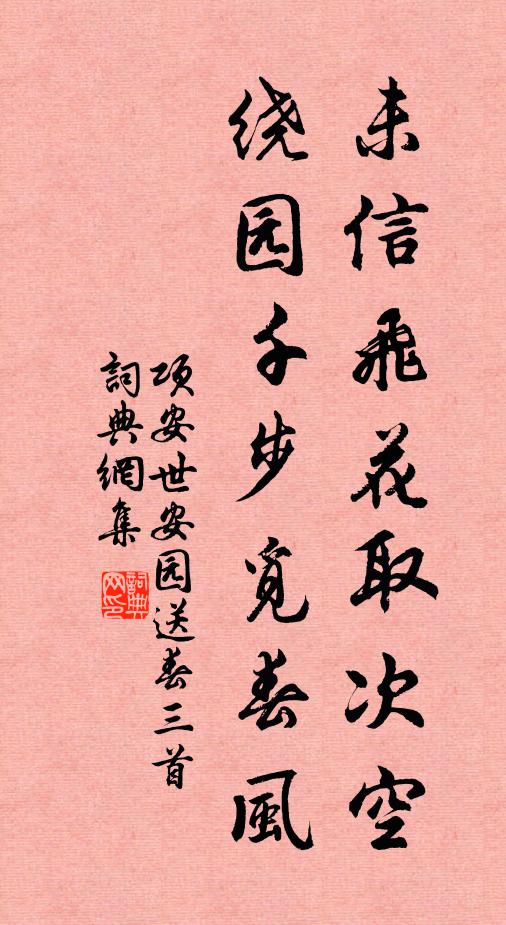 未信飛花取次空
绕园千步覓春風
項安世安园送春三首
詞典網集
詞典网印